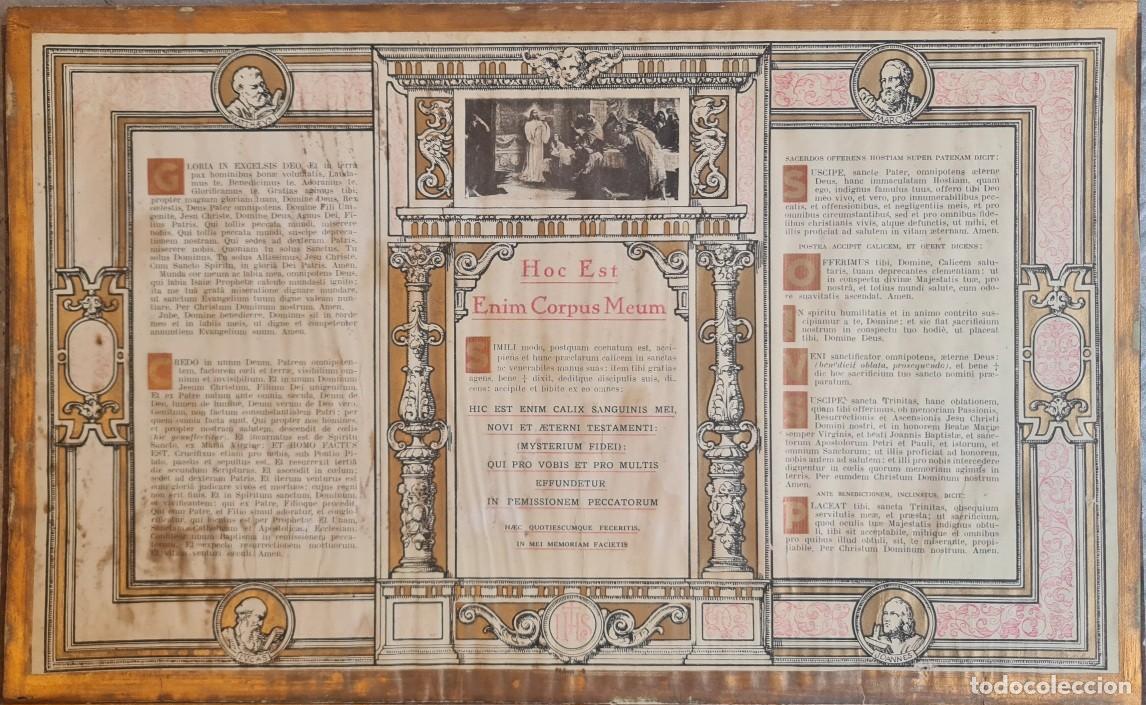 GLORIA IN EXCELSIS DEO. Et in terrâ
pax hominibus bonæ voluntatis. Lauda-
mus te. Benedicimus te. Adoramus te.
Glorificamus te. Gratias agimus tibi
propter magnam gloriam tuam, Domine Deus, Rex
cœlestis, Deus Pater omnipotens. Domine Fili uni-
genite, Jesu Christe, Domine Deus, Agnus Dei, Fi-
lius Patris. Qui tollis peccata mundi, miserere
nobis. Qui tollis peccata mundi, suscipe depreca-
tionem nostram. Qui sedes ad dexteram Patris,
miserere nobis. Quoniam tu solus Sanctus. Tu
solus Dominus. Tu solus Altissimus, Jesu Christe.
Cum Sancto Spiritu, in gloriâ Dei Patris. Amen.
Munda cor meum ac labia mea, omnipotens Deus,
qui labia Isaiæ Prophetæ calculo mundasti ignito;
ita me tuâ gratâ miseratione dignare mundare,
ut sanctum Evangelium tuum digne valeam nun-
tiare. Per Christum Dominum nostrum. Amen.
Jube, Domine benedicere. Dominus sit in corde
meo et in labiis meis, ut digne et competenter
annuntiem Evangelium suum. Amen.
CREDO in unum Deum, Patrem omnipoten-
tem, factorem cœli et terræ, visibilium om-
nium et invisibilium. Et in unum Dominum
Jesum Christum, Filium Dei unigenitum.
Et ex Patre natum ante omnia sæcula. Deum de
Deo, lumen de lumine, Deum verum de Deo vero.
Genitum, non factum consubstantialem Patri; per
quem omnia facta sunt. Qui propter nos homines,
et propter nostram salutem, descendit de cœlis
(hic genuflectitur). Et incarnatus est de Spiritu
Sancto, ex Maria Virgine: ET HOMO FACTUS
EST. Crucifixus etiam pro nobis, sub Pontio Pi-
lato, passus et sepultus est. Et resurrexit tertiâ
die secundum Scripturas. Et ascendit in cœlum;
sedet ad dexteram Patris. Et iterum venturus est
cum gloriâ judicare vivos et mortuos; cujus regni
non erit finis. Et in Spiritum sanctum, Dominum,
et vivificantem; qui ex Patre, Filioque procedit.
Qui cum Patre, et Filio simul adoratur, et conglo-
rificatur, qui locutus est per Prophetas. Et Unam,
Sanctam Catholicam et Apostolicam, Ecclesiam.
Confiteor unum Baptisma in remissionem pecca-
torum. Et expecto resurrectionem mortuorum.
Et vitam venturi sæculi. Amen.
Hoc Est
Enim Corpus Meum
SIMILI modo, postquam cœnatum est, acci-
piens et hunc præclarum calicem in sanctas
ac venerabiles manus suas: item tibi gratias
agens, bene † dixit, deditque discipulis suis, di-
cens: accipite et bibite ex eo omnes:
HIC EST ENIM CALIX SANGUINIS MEI,
NOVI ET ÆTERNI TESTAMENTI:
(MYSTERIUM FIDEI):
QUI PRO VOBIS ET PRO MULTIS
EFFUNDETUR
IN PEMISSIONEM PECCATORUM
HÆC QUOTIESCUMQUE FECERITIS,
IN MEI MEMORIAM FACIETIS
IHS
MARCUS
SACERDOS OFFERENS HOSTIAM SUPER PATENAM DICIT:
SUSCIPE, sancte Pater, omnipotens æterne
Deus, hanc immaculatam Hostiam, quam
ego, indignus famulus tuus, offero tibi Deo
meo vivo, et vero, pro innumerabilibus pec-
catis, et offensionibus, et negligentiis meis, et pro
omnibus circumstantibus, sed et pro omnibus fide-
libus christianis vivis, atque defunctis, ut mihi, et
illis proficiat ad salutem in vitam æternam. Amen.
POSTEA ACCIPIT CALICEM, ET OFFERT DICENS:
OFFERIMUS tibi, Domine, Calicem salu-
taris, tuam deprecantes clementiam; ut
in conspectu divinæ Majestatis tuæ, pro
nostrâ, et totius mundi salute, cum odo-
re suavitatis ascendat. Amen.
IN spiritu humilitatis et in animo contrito sus-
cipimur a te, Domine; et sic fiat sacrificium
nostrum in conspectu tuo hodiè, ut placeat
tibi, Domine Deus.
VENI sanctificator omnipotens, æterne Deus:
(benedicit oblata, prosequendo), et bene †
dic hoc sacrificium tuo sancto nomini præ-
paratum.
SUSCIPE, sancta Trinitas, hanc oblationem,
quam tibi offerimus, ob memoriam Passionis,
Resurrectionis et Ascensionis Jesu Christi
Domini nostri, et in honorem Beatæ Mariæ
semper Virginis, et beati Joannis Baptistæ, et sanc-
torum Apostolorum Petri et Pauli, et istorum, et
omnium Sanctorum; ut illis proficiat ad honorem,
nobis autem ad salutem; et illi pro nobis intercedere
dignentur in cœlis quorum memoriam agimus in
terris. Per eumdem Christum Dominum nostrum
Amen.
ANTE BENEDICTIONEM, INCLINATUS, DICIT:
PLACEAT tibi, sancta Trinitas, obsequium
servitutis meæ, et præsta; ut sacrificium,
quod oculis tuæ Majestatis indignus obtu-
li, tibi sit acceptabile, mihique et omnibus
pro quibus illud obtuli, sit, te miserante, propi-
tiabile. Per Christum Dominum nostrum. Amen.
JOANNES
todocoleccion